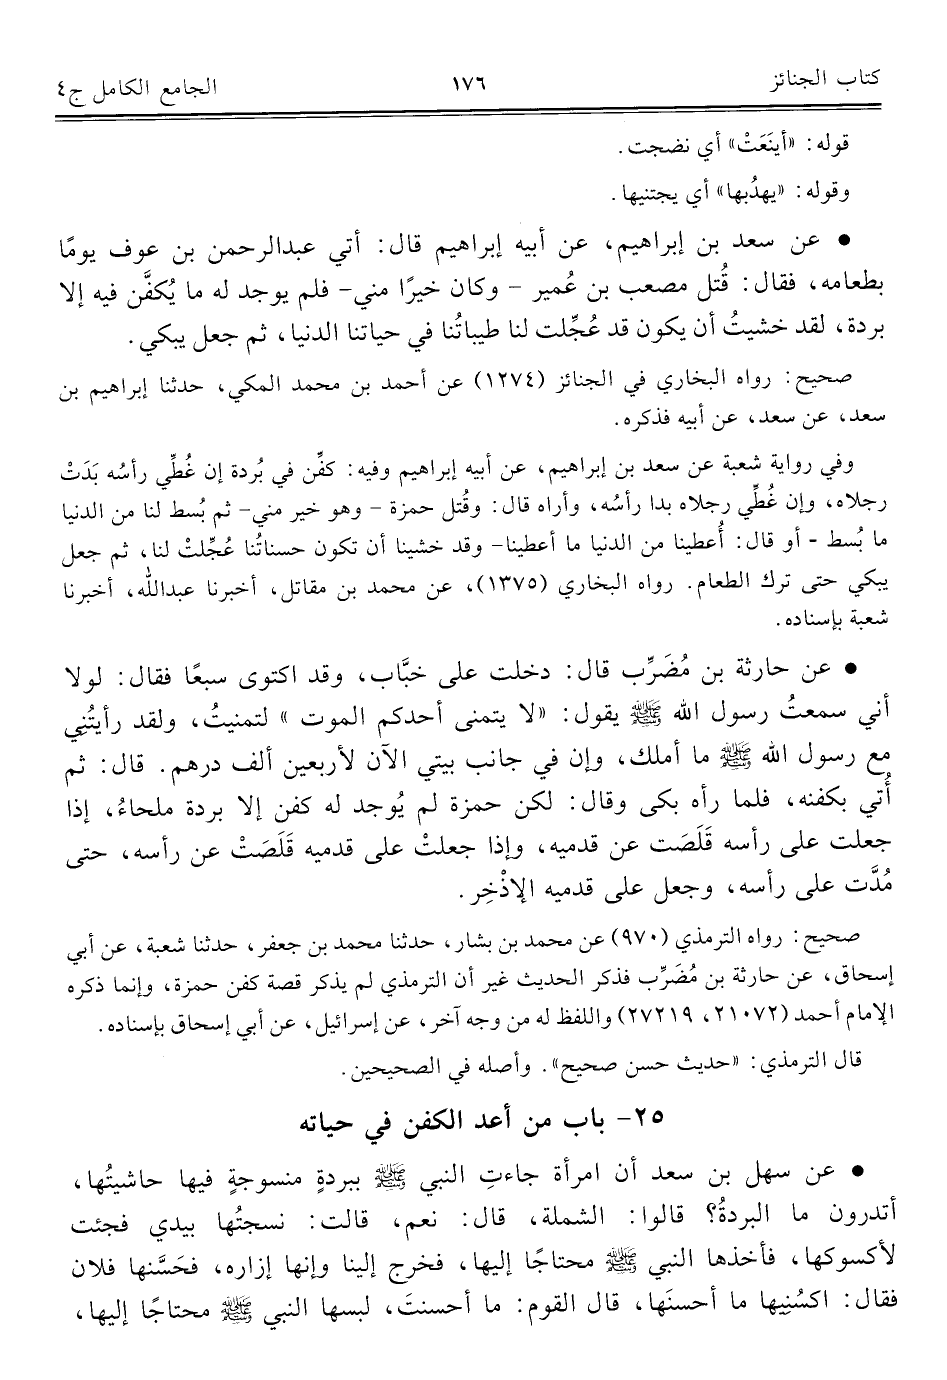 كتاب الجنائز ١٧٦ الجامع الكامل ج٤
قوله: «أينَعَتْ» أي نضجت.
وقوله: «يهدُبها» أي يجتنيها.
● عن سعد بن إبراهيم، عن أبيه إبراهيم قال: أتي عبدالرحمن بن عوف يومًا
بطعامه، فقال: قُتل مصعب بن عُمير - وكان خيرًا مني- فلم يوجد له ما يُكفَّن فيه إلا
بردة، لقد خشيتُ أن يكون قد عُجِّلت لنا طيباتُنا في حياتنا الدنيا، ثم جعل يبكي.
صحيح: رواه البخاري في الجنائز (١٢٧٤) عن أحمد بن محمد المكي، حدثنا إبراهيم بن
سعد، عن سعد، عن أبيه فذكره.
وفي رواية شعبة عن سعد بن إبراهيم، عن أبيه إبراهيم وفيه: كفِّن في بُردة إن غُطِّي رأسُه بَدَتْ
رجلاه، وإن غُطِّي رجلاه بدا رأسُه، وأراه قال: وقُتل حمزة - وهو خير مني- ثم بُسط لنا من الدنيا
ما بُسط - أو قال: أُعطينا من الدنيا ما أعطينا- وقد خشينا أن تكون حسناتُنا عُجِّلتْ لنا، ثم جعل
يبكي حتى ترك الطعام. رواه البخاري (١٣٧٥)، عن محمد بن مقاتل، أخبرنا عبدالله، أخبرنا
شعبة بإسناده.
● عن حارثة بن مُضَرِّب قال: دخلت على خبَّاب، وقد اكتوى سبعًا فقال: لولا
أني سمعتُ رسول الله ﷺ يقول: «لا يتمنى أحدكم الموت» لتمنيتُ، ولقد رأيتُنِي
مع رسول الله ﷺ ما أملك، وإن في جانب بيتي الآن لأربعين ألف درهم. قال: ثم
أُتي بكفنه، فلما رآه بكى وقال: لكن حمزة لم يُوجد له كفن إلا بردة ملحاءُ، إذا
جعلت على رأسه قَلَصَت عن قدميه، وإذا جعلتْ على قدميه قَلَصَتْ عن رأسه، حتى
مُدَّت على رأسه، وجعل على قدميه الإذْخِر.
صحيح: رواه الترمذي (٩٧٠) عن محمد بن بشار، حدثنا محمد بن جعفر، حدثنا شعبة، عن أبي
إسحاق، عن حارثة بن مُضَرِّب فذكر الحديث غير أن الترمذي لم يذكر قصة كفن حمزة، وإنما ذكره
الإمام أحمد (٢١٠٧٢، ٢٧٢١٩) واللفظ له من وجه آخر، عن إسرائيل، عن أبي إسحاق بإسناده.
قال الترمذي: «حديث حسن صحيح». وأصله في الصحيحين.
٢٥- باب من أعد الكفن في حياته
● عن سهل بن سعد أن امرأة جاءتِ النبي ﷺ ببردةٍ منسوجةٍ فيها حاشيتُها،
أتدرون ما البردةُ؟ قالوا: الشملة، قال: نعم، قالت: نسجتُها بيدي فجئت
لأكسوكها، فأخذها النبي ﷺ محتاجًا إليها، فخرج إلينا وإنها إزاره، فحَسَّنها فلان
فقال: اكسُنِيها ما أحسنَها، قال القوم: ما أحسنتَ، لبسها النبي ﷺ محتاجًا إليها،